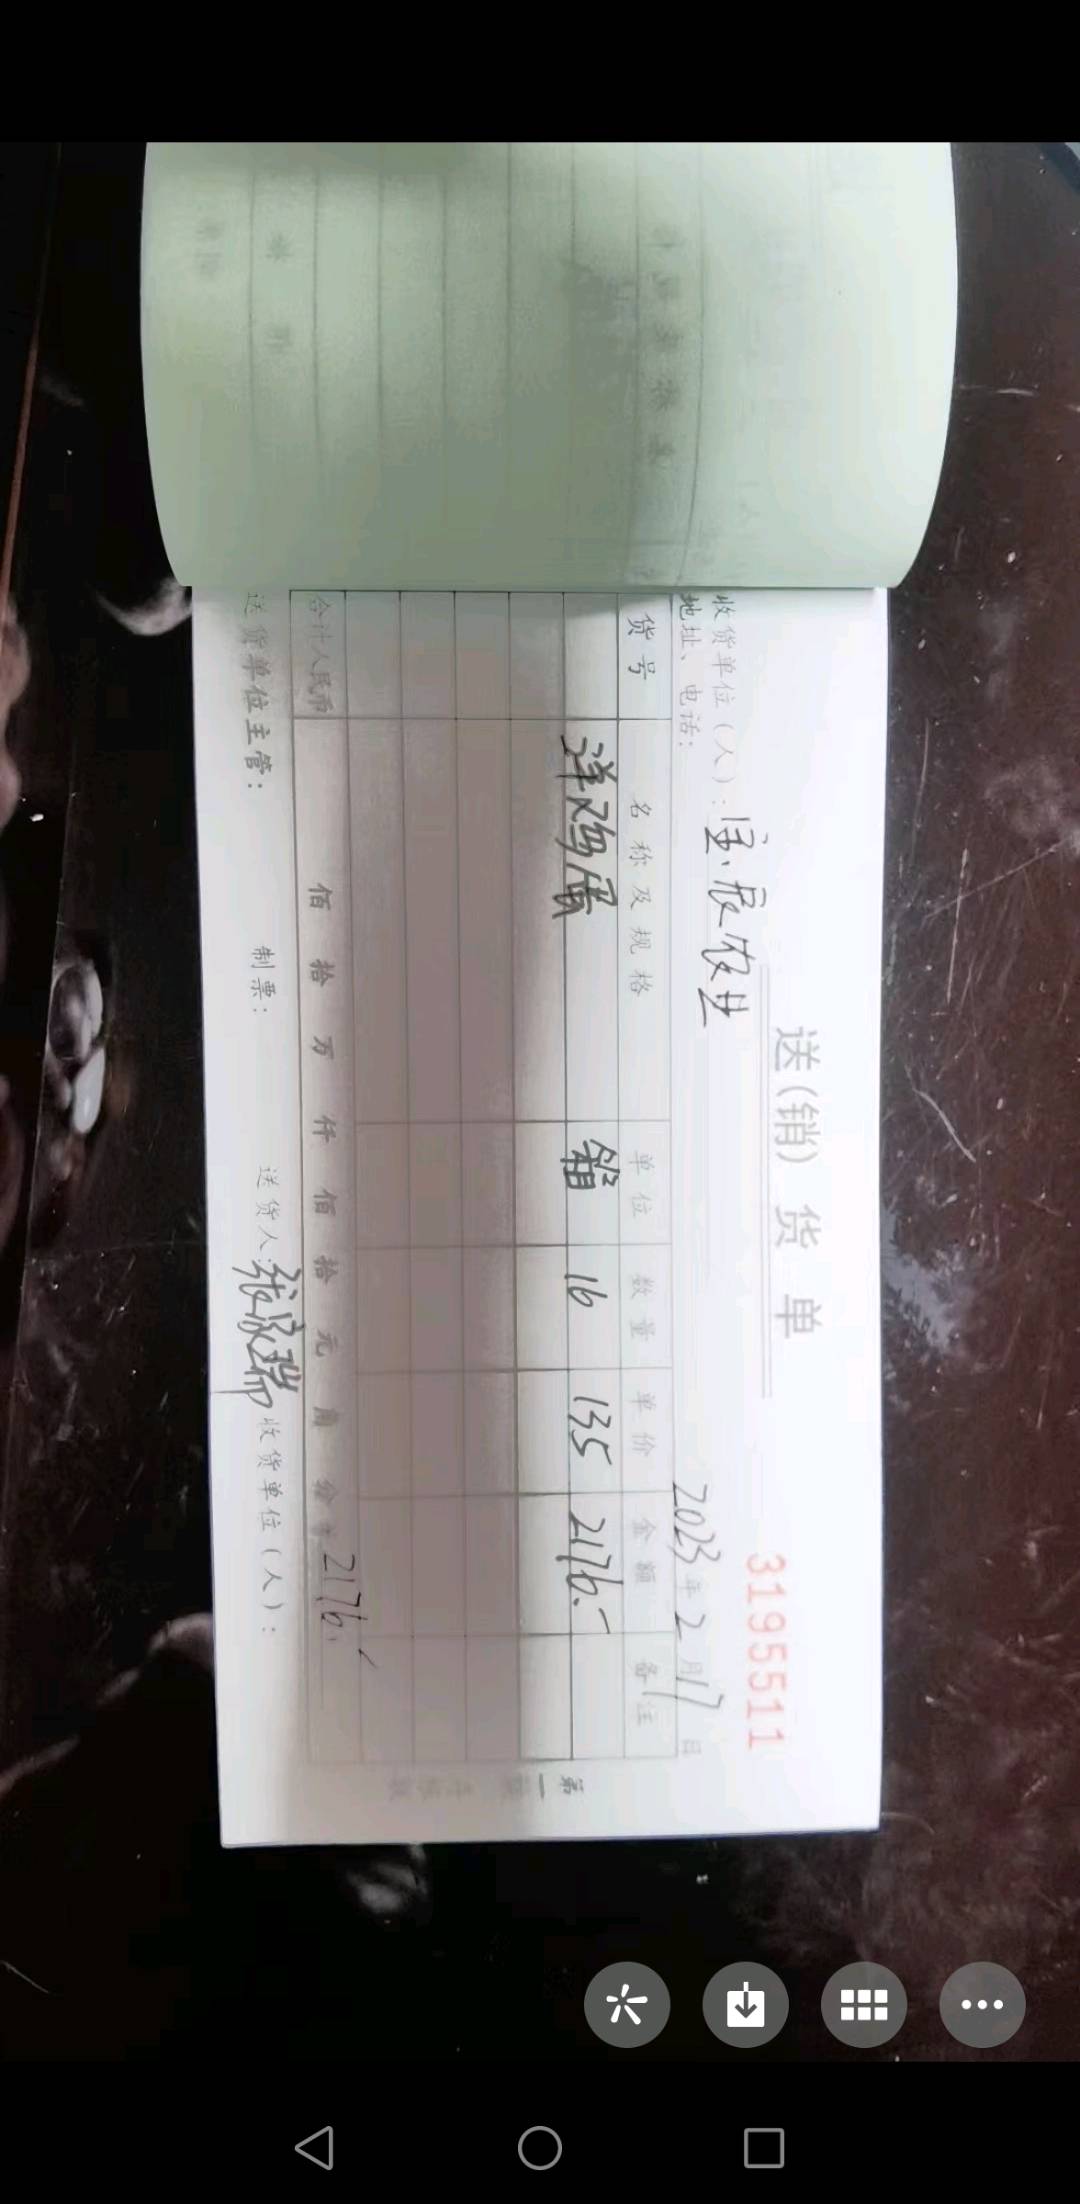 送(销) 货 单
3195511
收货单位(人): 宝辰农业
2023年2月17日
地址、电话:
货号 名称及规格 单位 数量 单价 金额 备注
洋鸡蛋 箱 16 135 2176.-
合计人民币 佰 拾 万 仟 佰 拾 元 角 分 ¥ 2176.-
送货单位主管: 制票: 送货人: 张家瑞 收货单位(人):
第一联